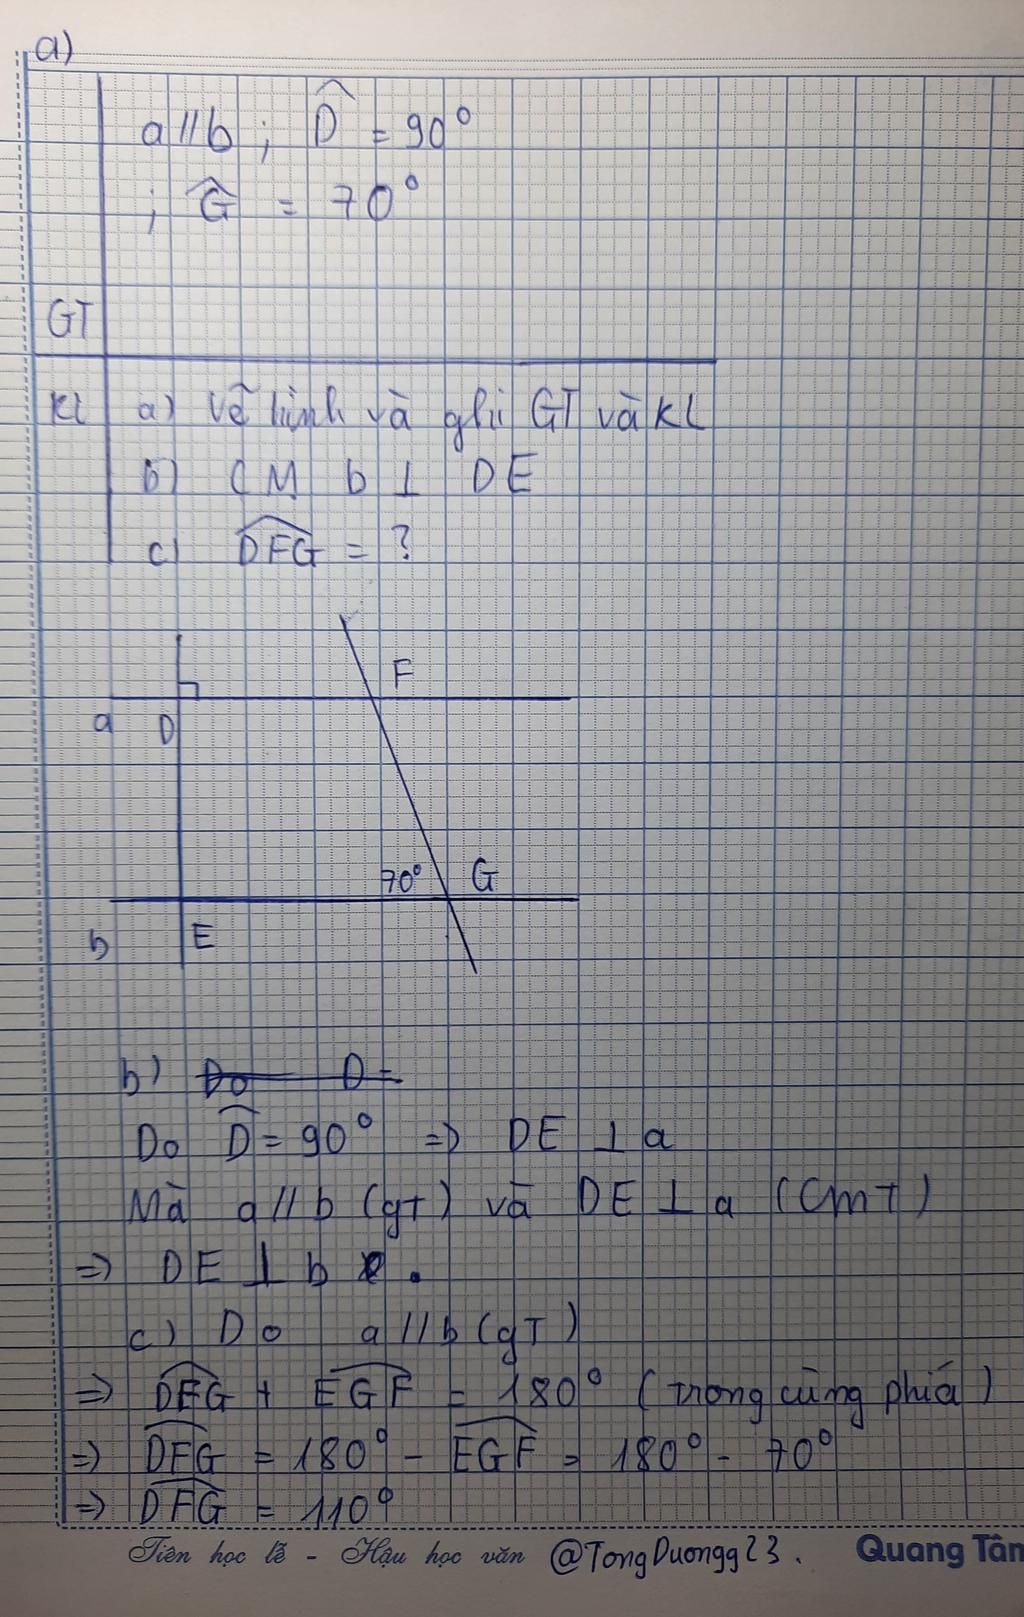 a)
a // b ; D̂ = 90°
; Ĝ = 70°
GT
KL a) Vẽ hình và ghi GT và KL
b) CM b ⊥ DE
c) D͡FG = ?
F
a D
70° G
b E
b) Do D =
Do D̂ = 90° => DE ⊥ a
Mà a // b (gT) và DE ⊥ a (CmT)
=> DE ⊥ b .
c) Do a // b (gT)
=> D͡FG + E͡GF = 180° (trong cùng phía)
=> D͡FG = 180° - E͡GF = 180° - 70°
=> D͡FG = 110°
Tiên học lễ - Hậu học văn @TongDuongg23. Quang Tân